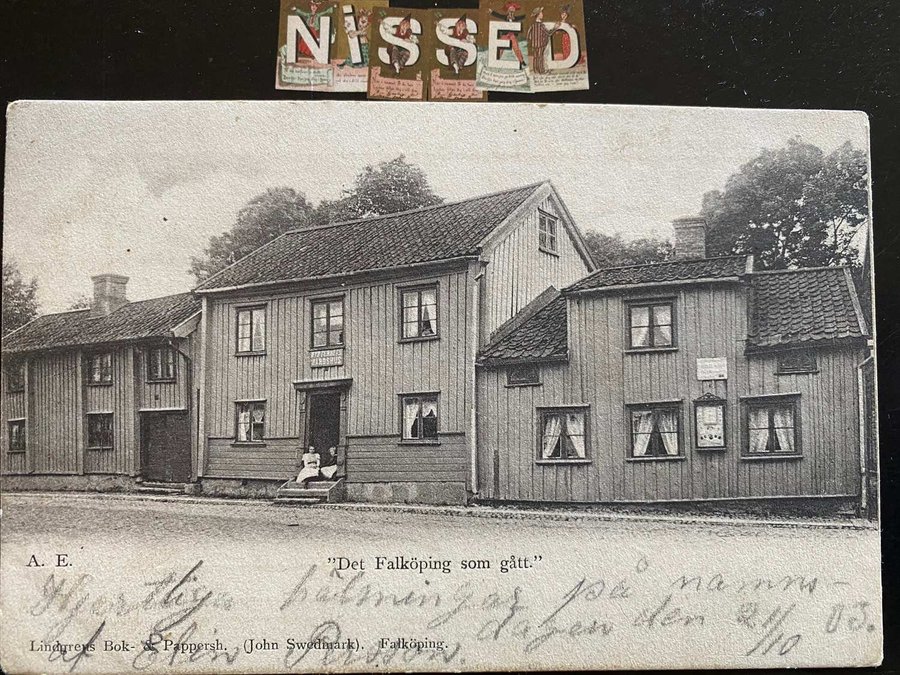 NiSSED
A. E.
"Det Falköping som gått."
Hjertliga hälsningar på namns-
dagen den 21/10 03.
Lindgrens Bok- & Pappersh. (John Swedmark). Falköping.
af Elin Persson.